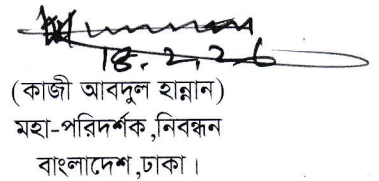 18.2.26
(কাজী আবদুল হান্নান)
মহা-পরিদর্শক,নিবন্ধন
বাংলাদেশ,ঢাকা।